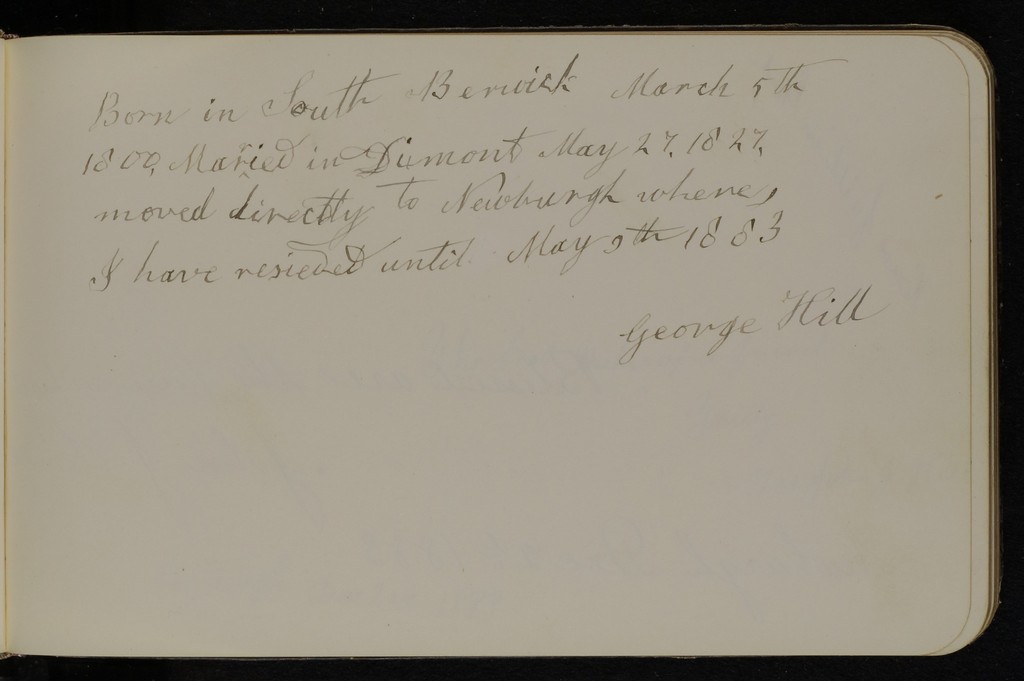 Born in South Berwick March 5th
1800, Maried in Dixmont May 27, 1827,
moved directly to Newburgh where,
I have resieded until May 9th 1883
George Hill